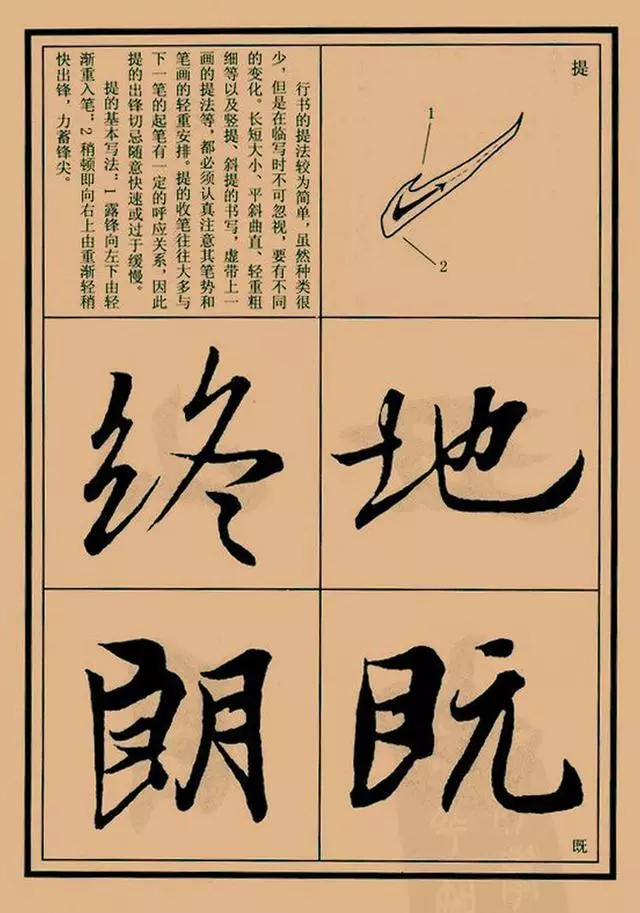 提
1
2
行书的提法较为简单，虽然种类很
少，但是在临写时不可忽视，要有不同
的变化。长短大小、平斜曲直、轻重粗
细等以及竖提、斜提的书写，虚带上一
画的提法等，都必须认真注意其笔势和
笔画的轻重安排。提的收笔往往大多与
下一笔的起笔有一定的呼应关系，因此
提的出锋切忌随意快速或过于缓慢。
提的基本写法：1 露锋向左下由轻
渐重入笔；2 稍顿即向右上由重渐轻稍
快出锋，力蓄锋尖。
地
终
既
朗
既